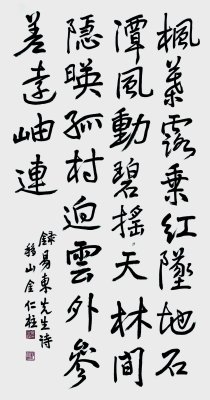 楓葉露垂紅墜地石
潭風動碧搖天林間
隱暎孤村迥雲外參
差遠岫連
錄易東先生詩
山金仁柱